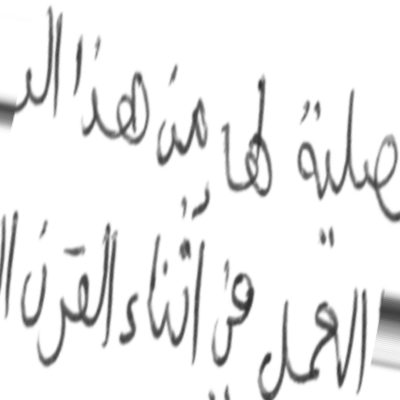 صلية لها من هذا
العمل في أثناء القرن